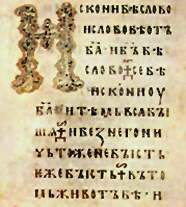 ИСКОНИБѢСЛОВО
ИСЛОВОБѢОТЪ
Б҃А·ИБ҃ЪБѢ
СЛОВО☩СЕБѢ
ИСКОНИОУ
Б҃АИТѢМЬВЬСАБЪІ
ША☩ИБЕЗНЕГОНИ
ЧЬТОЖЕНЕБЪІСТЬ
ѤЖЕБЪІСТЬ☩ВЪТО
МЬЖИВОТЪБѢ·И